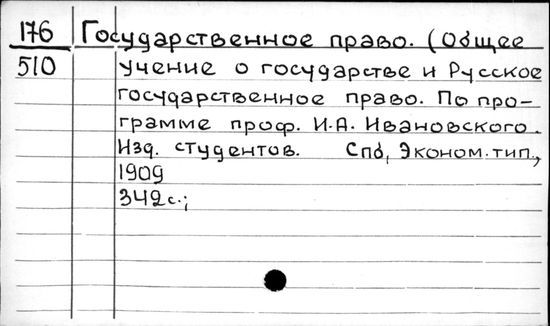 176 Государственное право. (Общее
510 учение о государстве и Русское
государственное право. По про-
грамме проф. И.А. Ивановского.
Изд. студентов. Спб, Эконом. тип.,
1909
342с.;